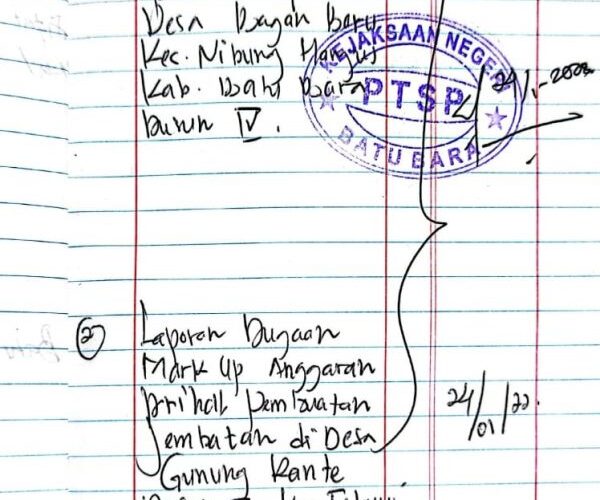 Desa Bagan Baru
Kec. Nibung Hangus
Kab. Batu Bara
Dusun IV.
KEJAKSAAN NEGERI
PTSP
BATU BARA
② Laporan Dugaan
Mark Up Anggaran
prihal pembuatan
Jembatan di Desa
Gunung Rante
24/01/22.